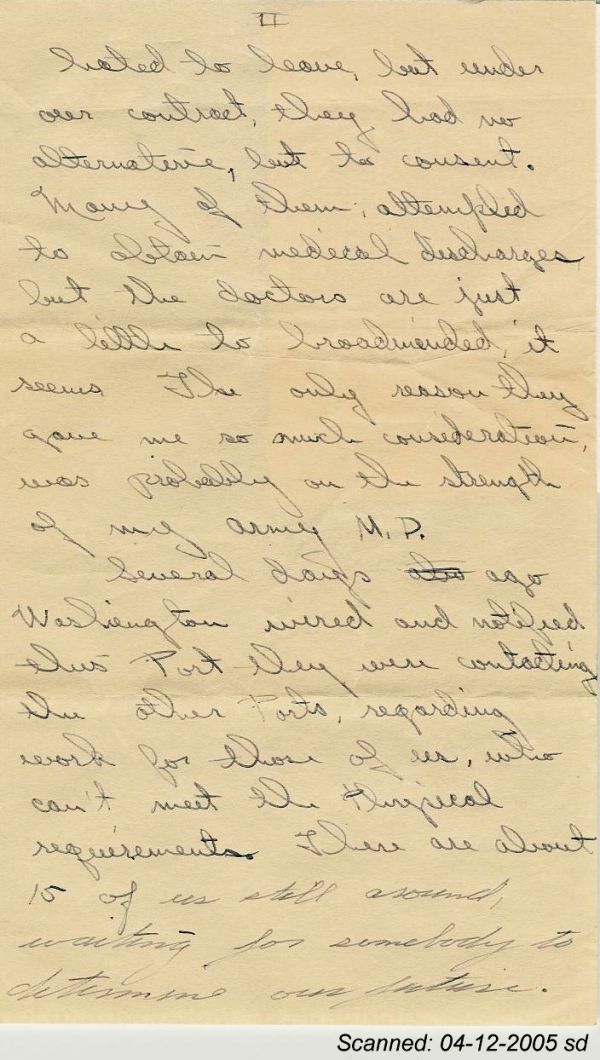 II
hated to leave, but under
our contract, they had no
alternative, but to consent.
Many of them, attempted
to obtain medical discharges
but the doctors are just
a little to broadminded, it
seems. The only reason they
gave me so much consideration,
was probably on the strength
of my army M.D.
Several days ago
Washington wired and notified
this Port they were contacting
the other Ports, regarding
work for those of us, who
can't meet the physical
requirements. There are about
15 of us still around,
waiting for somebody to
determine our future.
Scanned: 04-12-2005 sd